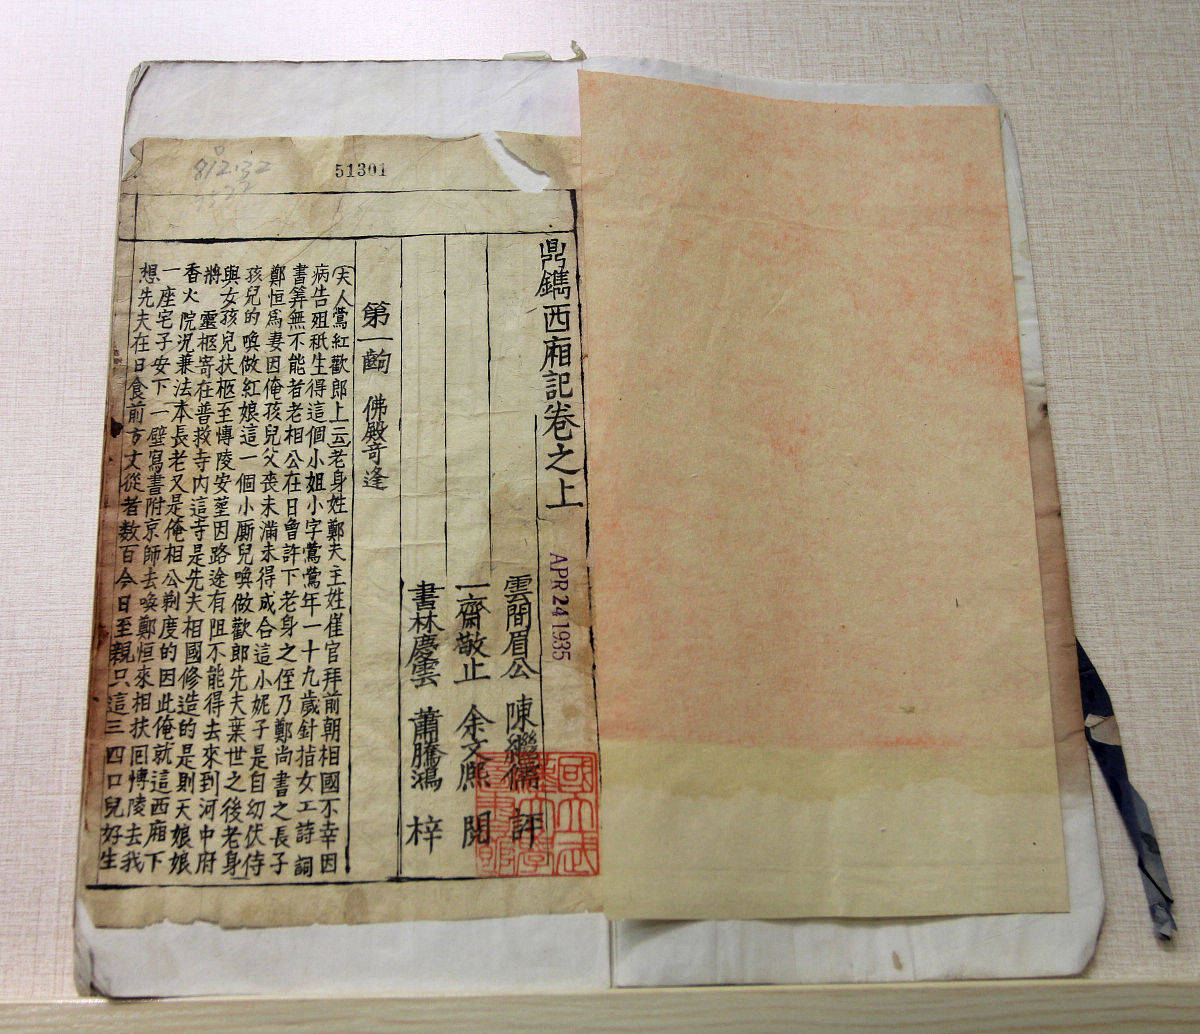 812.32
51301
鼎鐫西廂記卷之上
APR 24 1935
雲間眉公 陳繼儒 評
一齋敬止 余文熈 閱
書林慶雲 蕭騰鴻 梓
國立武漢大學圖書館
第一齣 佛殿奇逢
夫人鶯紅歡郎上云老身姓鄭夫主姓崔官拜前朝相國不幸因
病告殂秪生得這個小姐小字鶯鶯年一十九歲針指女工詩詞
書筭無不能者老相公在日曾許下老身之侄乃鄭尚書之長子
鄭恒爲妻因俺孩兒父喪未滿未得成合這小妮子是自幼伏侍
孩兒的喚做紅娘這一個小厮兒喚做歡郎先夫棄世之後老身
與女孩兒扶柩至愽陵安塟因路途有阻不能得去來到河中府
將靈柩寄在普救寺內這寺是先夫相國修造的是則天娘娘
香火院況兼法本長老又是俺相公剃度的因此俺就這西廂下
一座宅子安下一壁寫書附京師去喚鄭恒來相扶囘愽陵去我
想先夫在日食前方丈從者数百今日至親只這三四口兒好生